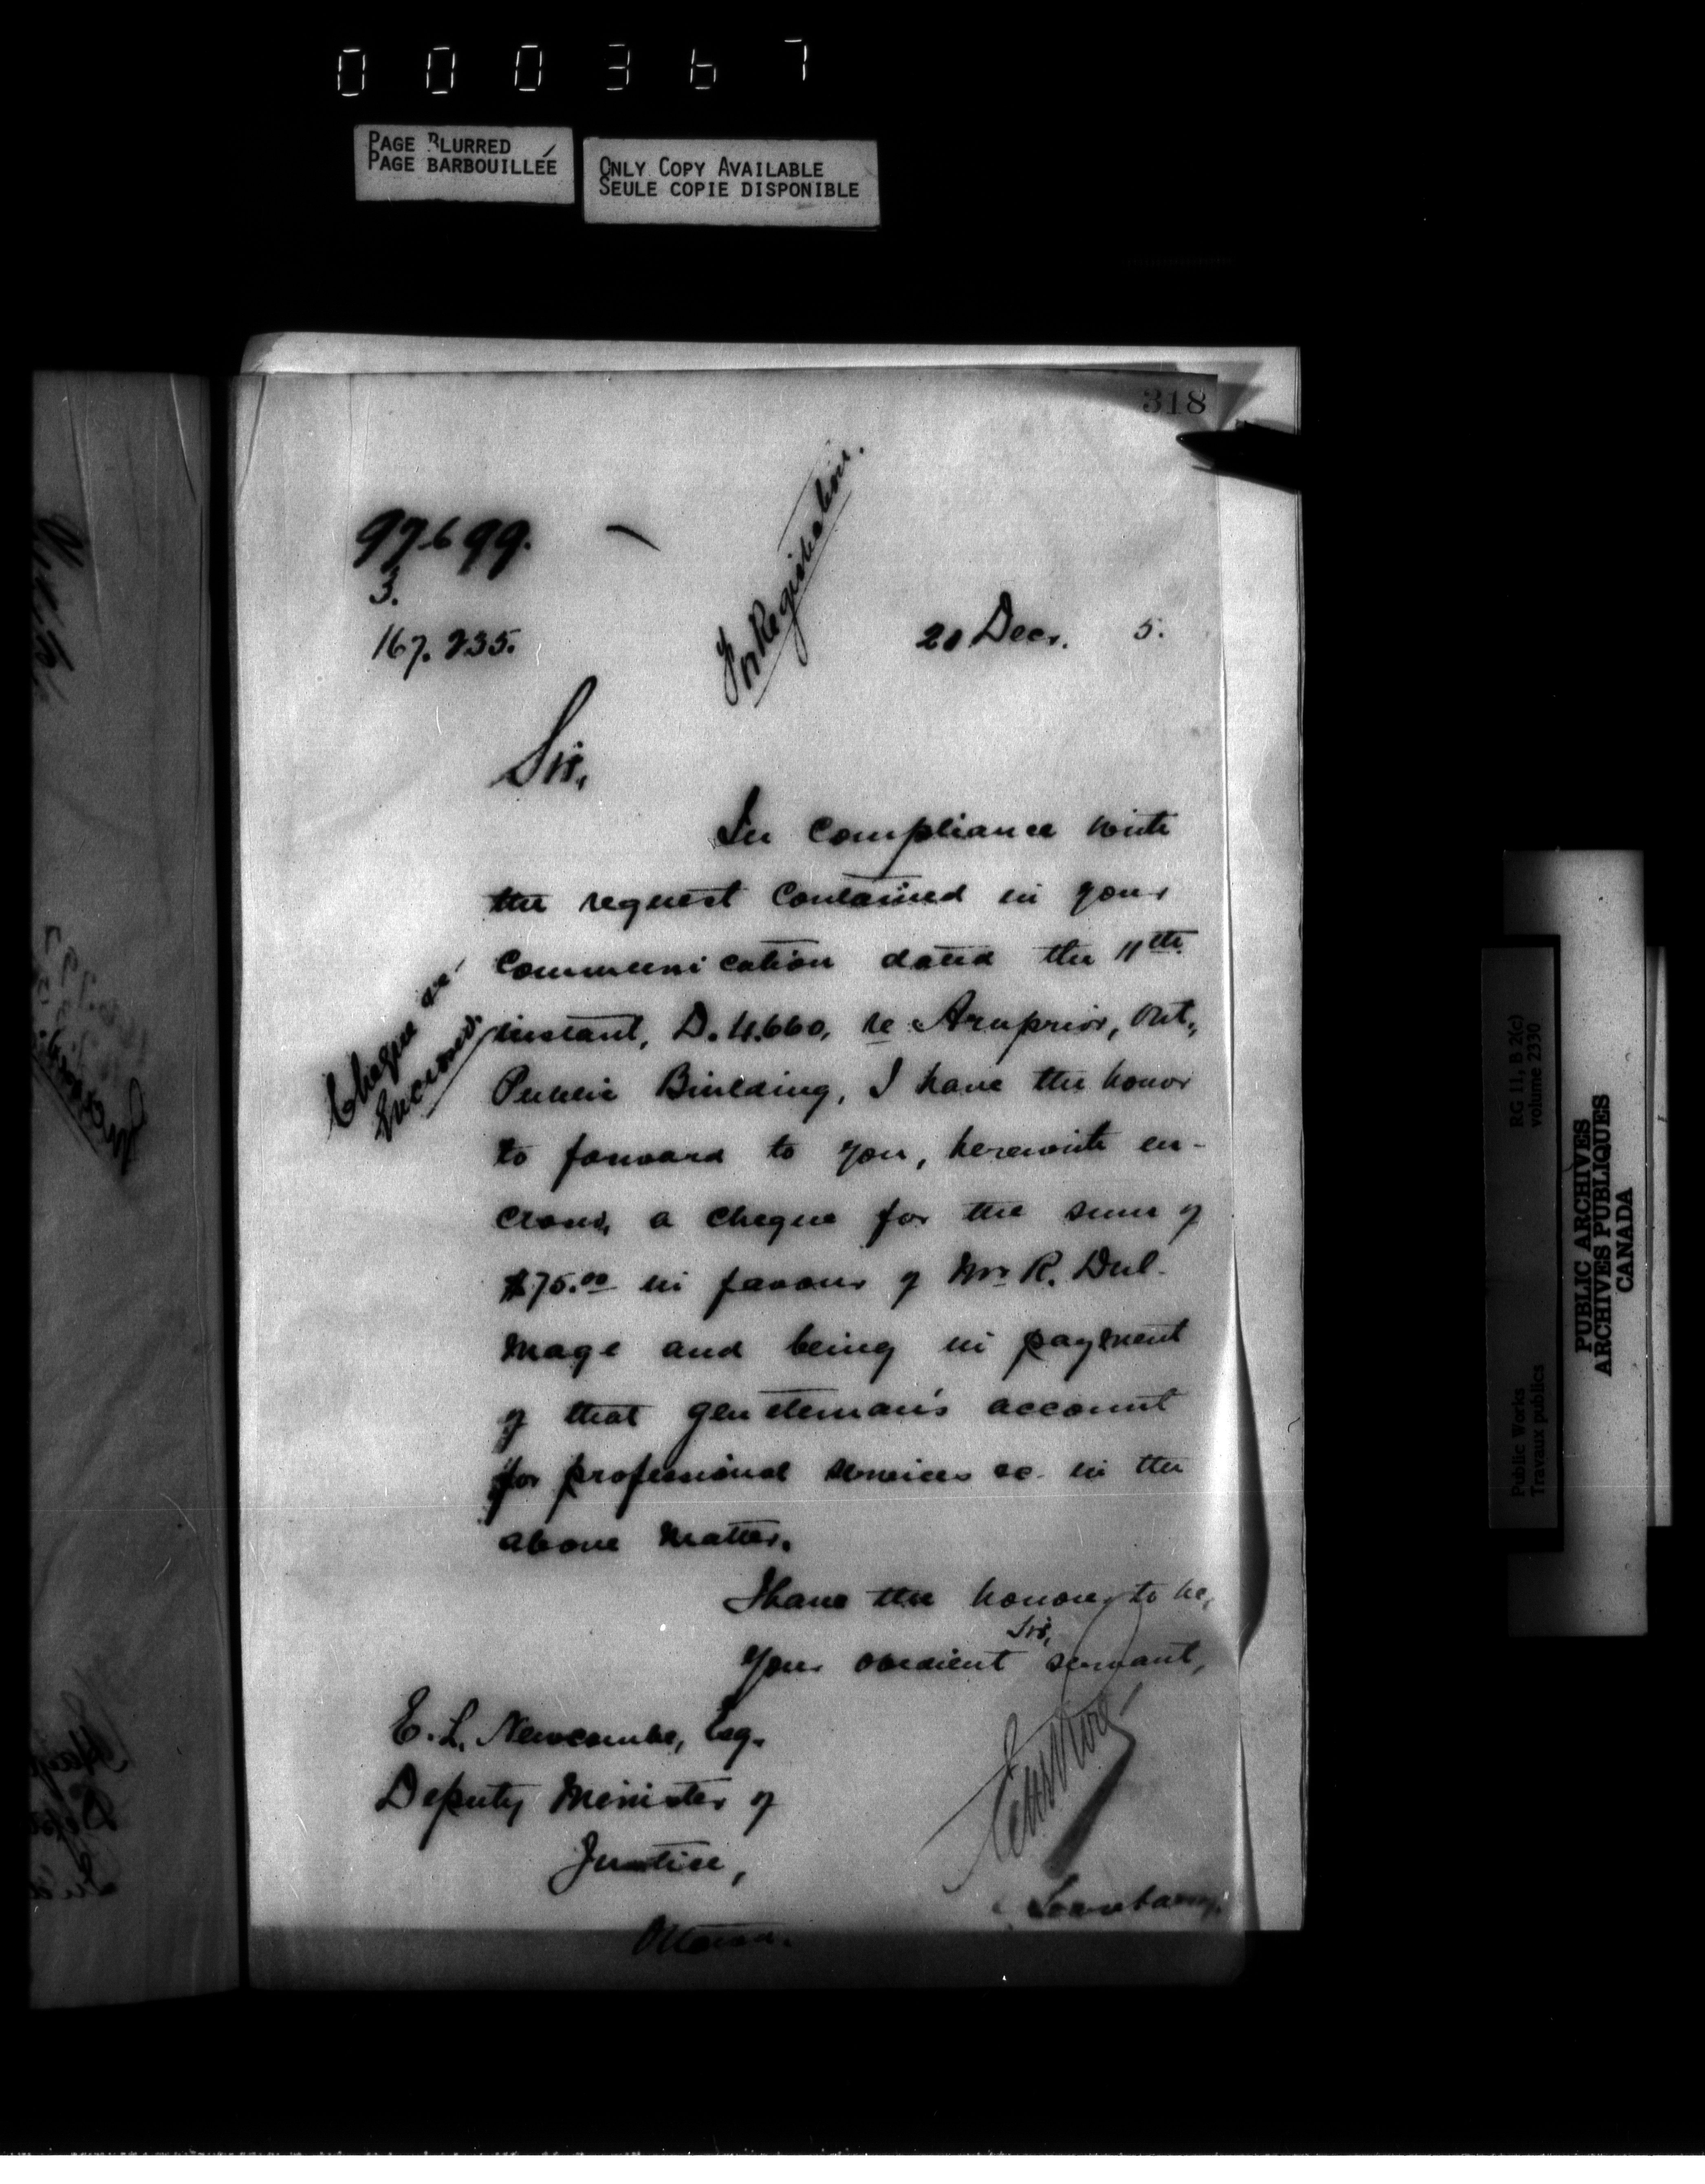 000367
PAGE BLURRED
PAGE BARBOUILLÉE
ONLY COPY AVAILABLE
SEULE COPIE DISPONIBLE
318
97699.
3.
167.235.
For Registration.
20 Decr. 5.
Sir,
In compliance with
the request contained in your
communication dated the 11th
instant, D. 4.660, re Arnprior, Ont.,
Public Building, I have the honor
to forward to you, herewith en-
closed, a cheque for the sum of
$75.00 in favour of Mr R. Dul-
mage and being in payment
of that gentleman's account
for professional services &c. in the
above matter.
Cheque
Enclosed.
I have the honour to be,
Sir,
Your obedient servant,
E. L. Newcombe, Esq.
Deputy Minister of
Justice,
Ottawa.
Secretary.
RG 11, B 2(c)
volume 2330
Public Works
Travaux publics
PUBLIC ARCHIVES
ARCHIVES PUBLIQUES
CANADA